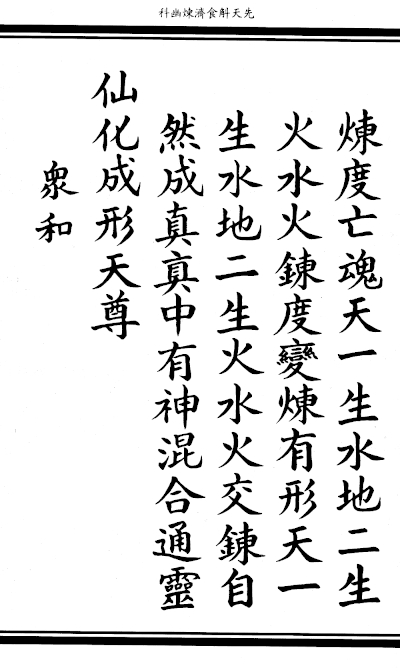 先天斛食濟煉幽科
煉度亡魂天一生水地二生
火水火鍊度變煉有形天一
生水地二生火水火交鍊自
然成真真中有神混合通靈
仙化成形天尊
眾和